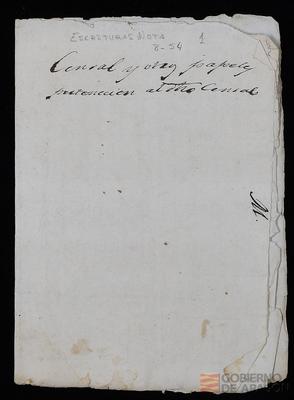 ESCRITURAS NOTA 1
8-54
Censal y otros papeles
pertenecen al dho Censal
GOBIERNO
DE ARAGON